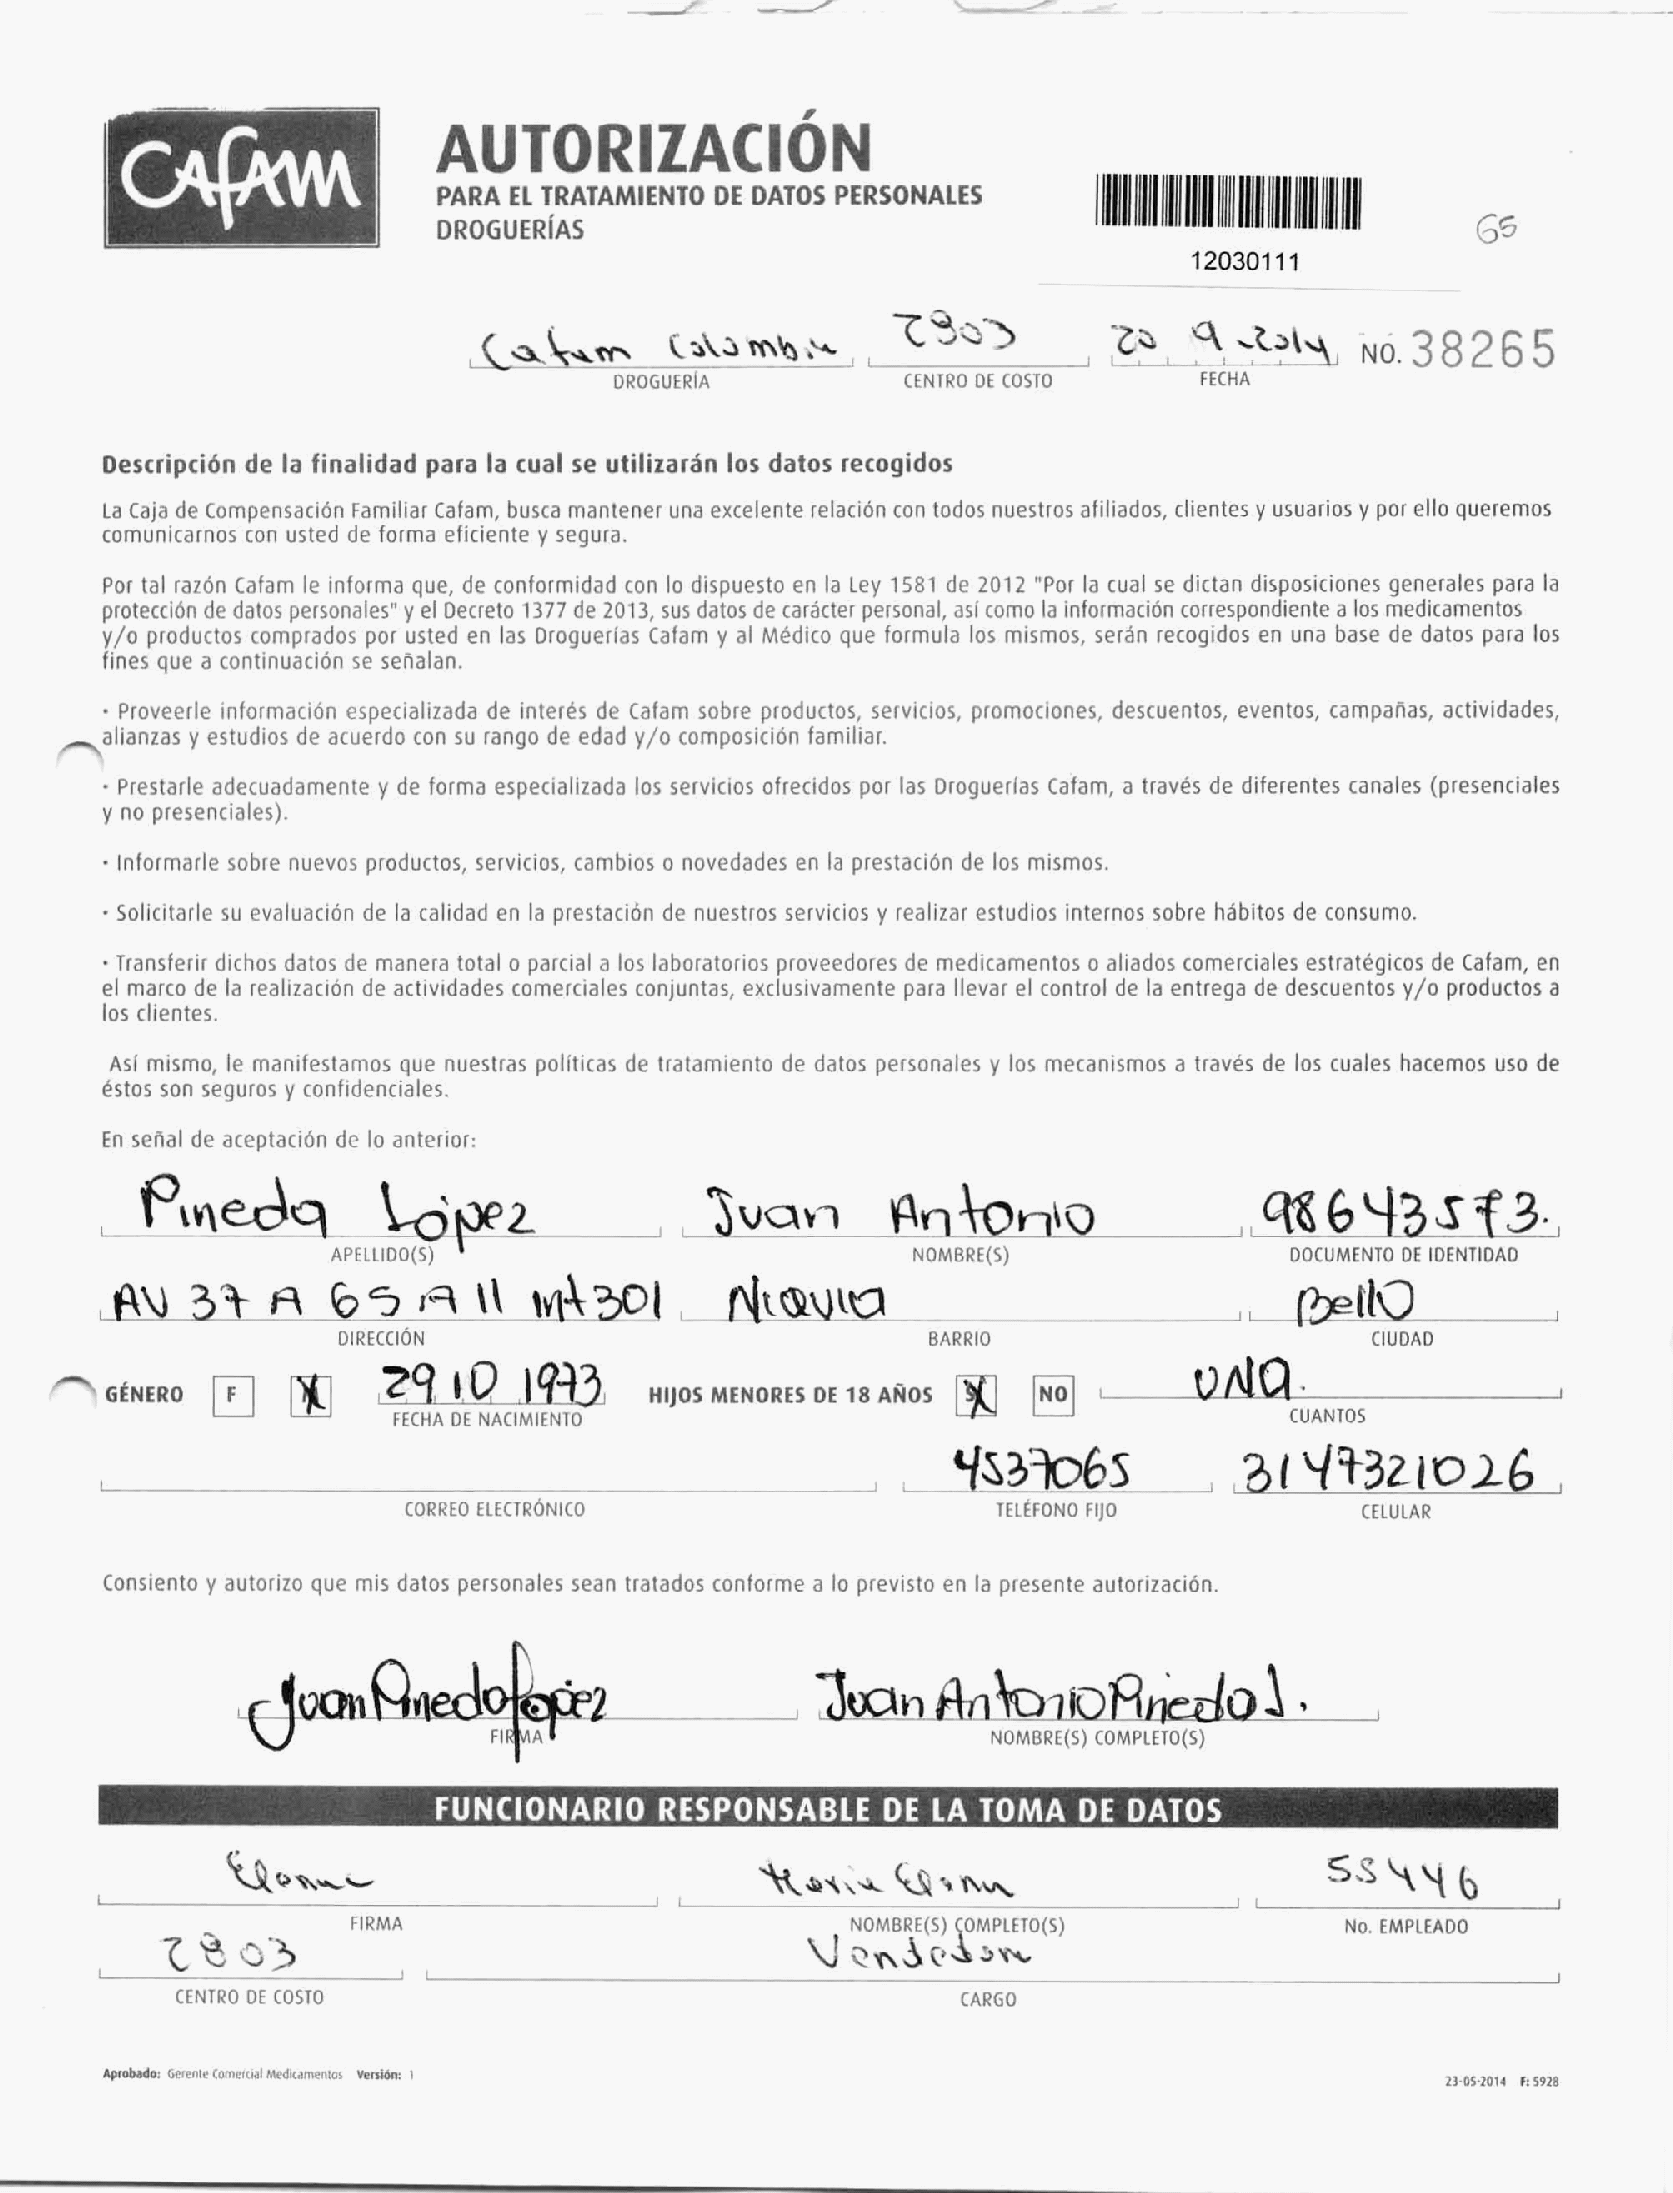 Cafam
AUTORIZACIÓN
PARA EL TRATAMIENTO DE DATOS PERSONALES
DROGUERÍAS
12030111
65
Cafam Colombia 2803 20 9 2014 NO. 38265
DROGUERÍA CENTRO DE COSTO FECHA
Descripción de la finalidad para la cual se utilizarán los datos recogidos
La Caja de Compensación Familiar Cafam, busca mantener una excelente relación con todos nuestros afiliados, clientes y usuarios y por ello queremos
comunicarnos con usted de forma eficiente y segura.
Por tal razón Cafam le informa que, de conformidad con lo dispuesto en la Ley 1581 de 2012 "Por la cual se dictan disposiciones generales para la
protección de datos personales" y el Decreto 1377 de 2013, sus datos de carácter personal, así como la información correspondiente a los medicamentos
y/o productos comprados por usted en las Droguerías Cafam y al Médico que formula los mismos, serán recogidos en una base de datos para los
fines que a continuación se señalan.
· Proveerle información especializada de interés de Cafam sobre productos, servicios, promociones, descuentos, eventos, campañas, actividades,
alianzas y estudios de acuerdo con su rango de edad y/o composición familiar.
· Prestarle adecuadamente y de forma especializada los servicios ofrecidos por las Droguerías Cafam, a través de diferentes canales (presenciales
y no presenciales).
· Informarle sobre nuevos productos, servicios, cambios o novedades en la prestación de los mismos.
· Solicitarle su evaluación de la calidad en la prestación de nuestros servicios y realizar estudios internos sobre hábitos de consumo.
· Transferir dichos datos de manera total o parcial a los laboratorios proveedores de medicamentos o aliados comerciales estratégicos de Cafam, en
el marco de la realización de actividades comerciales conjuntas, exclusivamente para llevar el control de la entrega de descuentos y/o productos a
los clientes.
Así mismo, le manifestamos que nuestras políticas de tratamiento de datos personales y los mecanismos a través de los cuales hacemos uso de
éstos son seguros y confidenciales.
En señal de aceptación de lo anterior:
Pineda López Juan Antonio 98643573.
APELLIDO(S) NOMBRE(S) DOCUMENTO DE IDENTIDAD
AV 37 A 65 A 11 int 301 Niquia Bello
DIRECCIÓN BARRIO CIUDAD
GÉNERO F X 29 10 1973 HIJOS MENORES DE 18 AÑOS X NO una.
FECHA DE NACIMIENTO CUANTOS
4537065 3147321026
CORREO ELECTRÓNICO TELÉFONO FIJO CELULAR
Consiento y autorizo que mis datos personales sean tratados conforme a lo previsto en la presente autorización.
Juan Pineda López Juan Antonio Pineda L.
FIRMA NOMBRE(S) COMPLETO(S)
FUNCIONARIO RESPONSABLE DE LA TOMA DE DATOS
Maria 55446
FIRMA NOMBRE(S) COMPLETO(S) No. EMPLEADO
2803 Vendedora
CENTRO DE COSTO CARGO
Aprobado: Gerente Comercial Medicamentos Versión: 1
23-05-2014 F: 5928